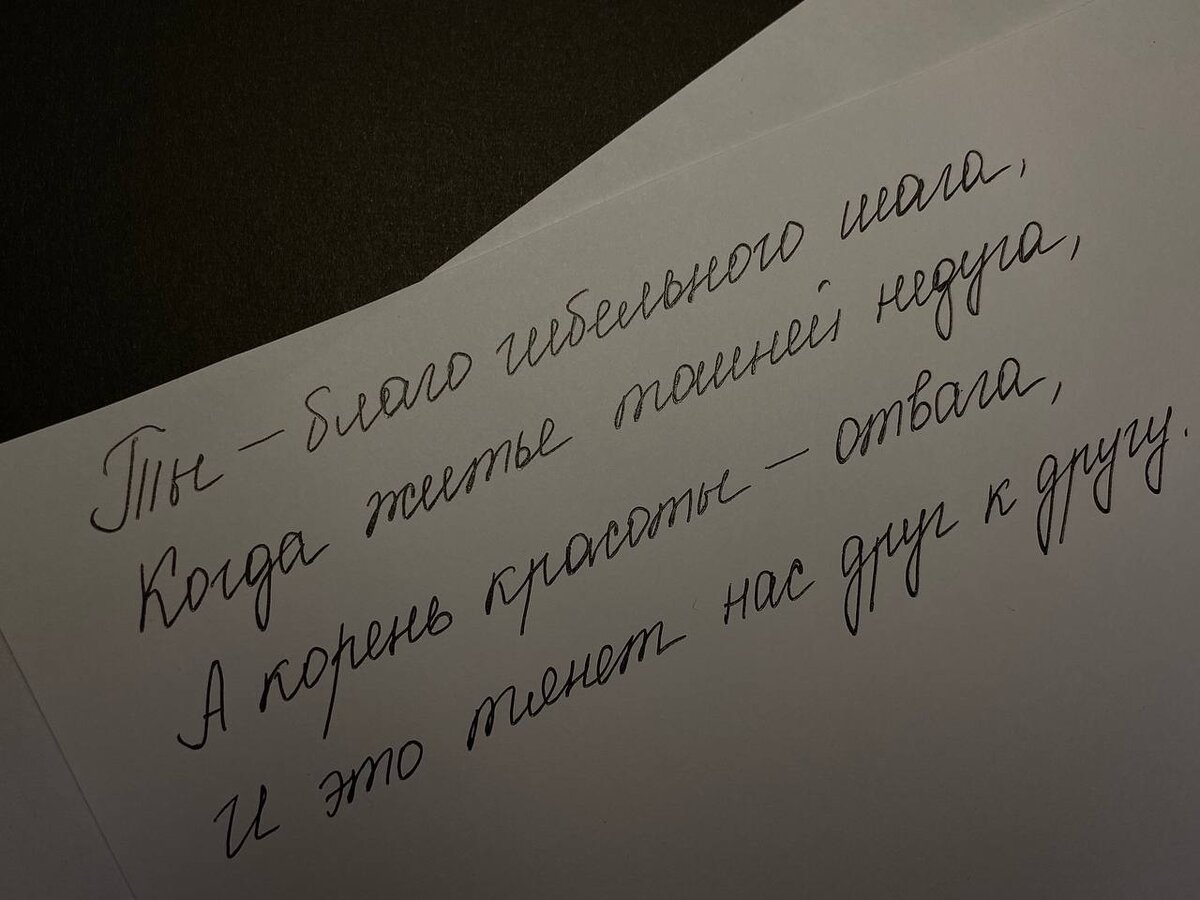 Ты – благо гибельного шага,
Когда житье тошней недуга,
А корень красоты – отвага,
И это тянет нас друг к другу.